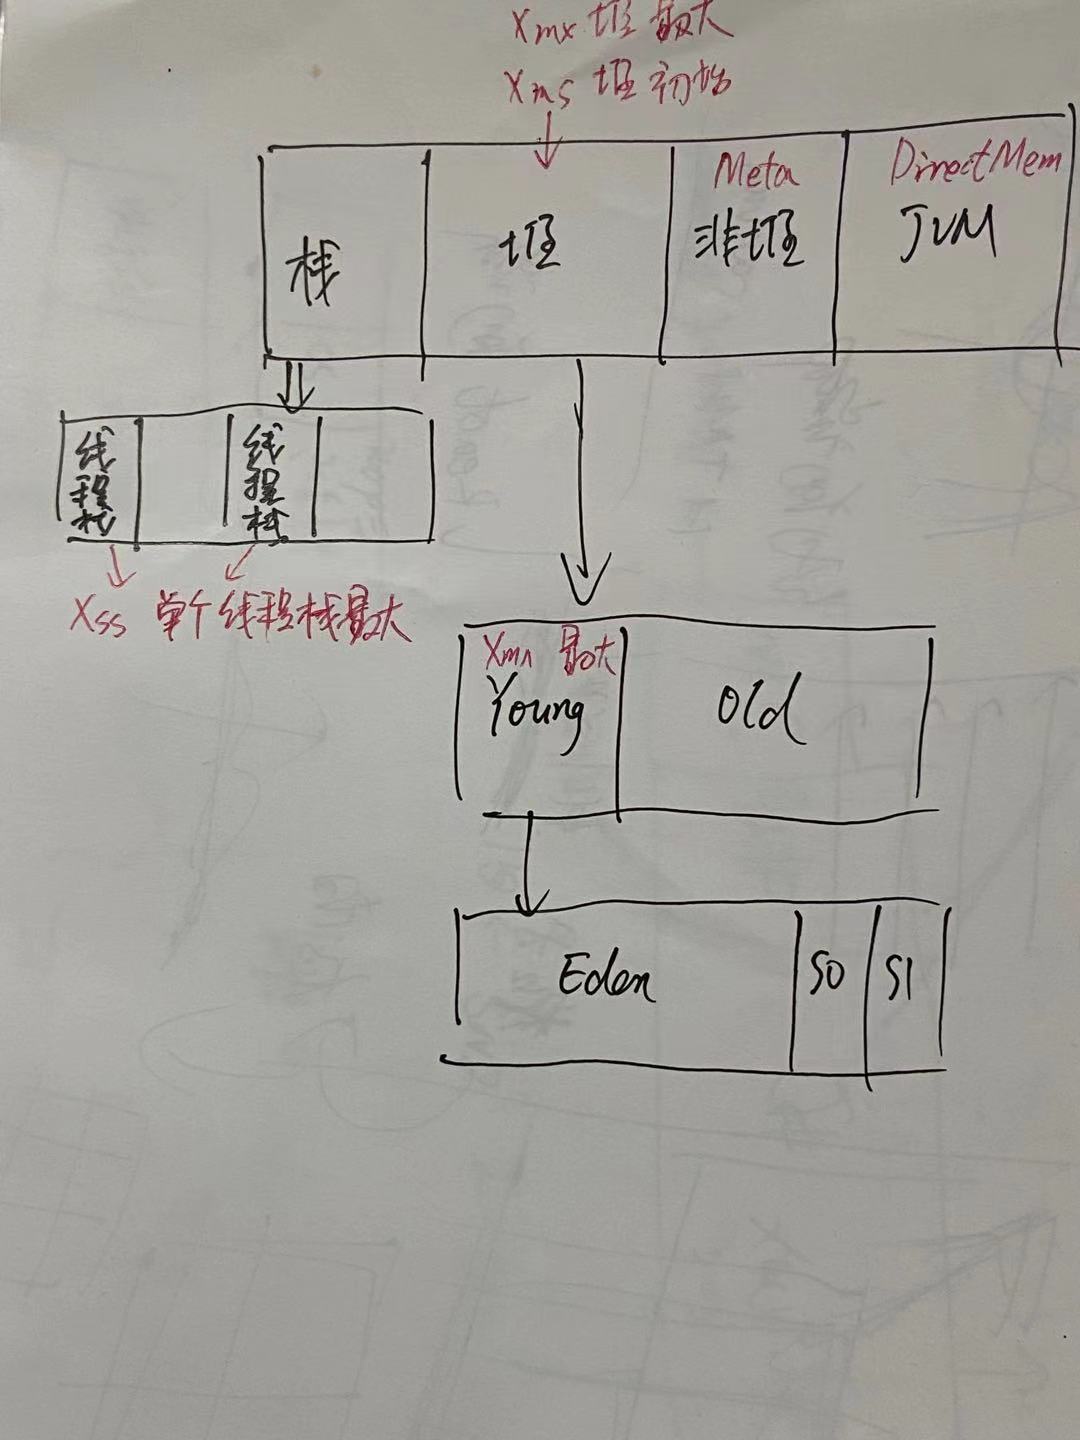 Xmx 堆 最大
Xms 堆 初始
Meta
DirectMem
栈
堆
非堆
JVM
线程栈
线程栈
Xss 单个线程栈最大
Xmn 最大
Young
Old
Eden
S0
S1